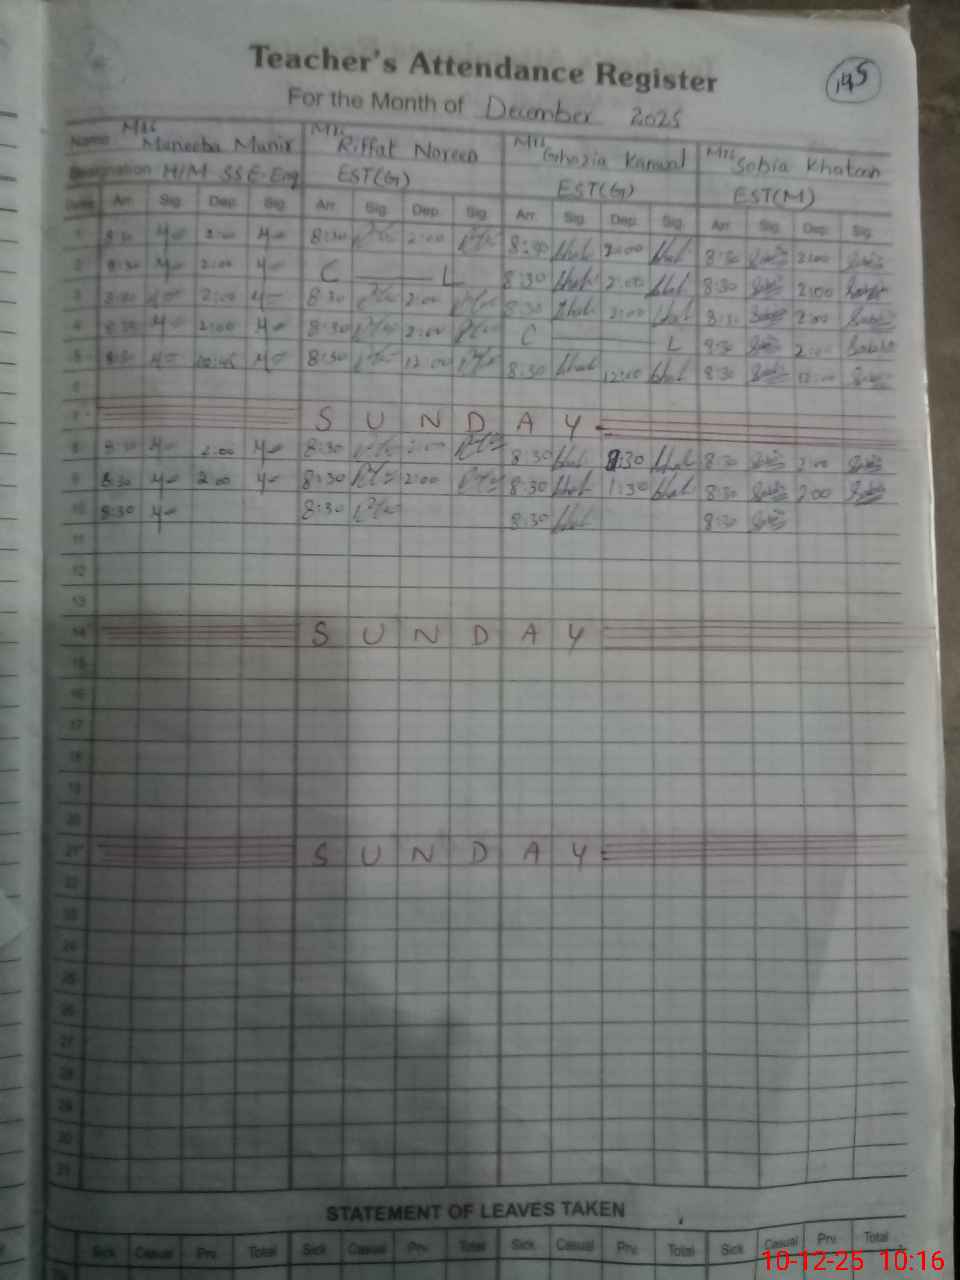 Teacher's Attendance Register
195
For the Month of December 2025
Name Mrs Muneeba Munir Mrs Riffat Noreen Mrs Ghazia Kanwal Mrs Sobia Khatoon
Designation H/M SSE-Eng EST(G) EST(G) EST(M)
Date Arr. Sig. Dep. Sig. Arr. Sig. Dep. Sig. Arr. Sig. Dep. Sig. Arr. Sig. Dep. Sig.
1 8:30 2:00 8:30 2:00 8:30 2:00 8:30 2:00
2 8:30 2:00 C L 8:30 2:00 8:30 2:00
3 8:30 2:00 8:30 2:00 8:30 2:00 8:30 2:00
4 8:30 2:00 8:30 2:00 C L 8:30 2:00
5 8:30 8:30 12:00 8:30 12:00 8:30 12:00
6
7 S U N D A Y
8 8:30 2:00 8:30 2:00 8:30 1:30 8:30 2:00
9 8:30 2:00 8:30 2:00 8:30 1:30 8:30 2:00
10 8:30 8:30 8:30 8:30
11
12
13
14 S U N D A Y
15
16
17
18
19
20
21 S U N D A Y
22
23
24
25
26
27
28
29
30
31
STATEMENT OF LEAVES TAKEN
Sick Casual Prv. Total Sick Casual Prv. Total Sick Casual Prv. Total Sick Casual Prv. Total
10-12-25 10:16